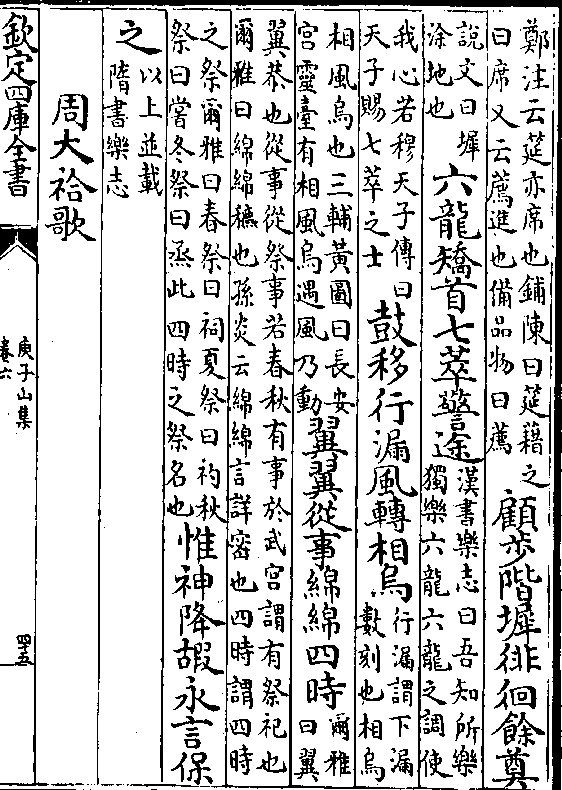 鄭注云筵亦席也鋪陳曰筵藉之
曰席又云薦進也備品物曰薦
顧步階墀徘徊餘奠
說文曰墀
涂地也
六龍矯首七萃警途
漢書樂志曰吾知所樂
獨樂六龍六龍之調使
我心若穆天子傳曰
天子賜七萃之士
鼓移行漏風轉相烏
行漏謂下漏
數刻也相烏
相風烏也三輔黃圖曰長安
宮靈臺有相風烏遇風乃動
翼翼從事綿綿四時
爾雅
曰翼
翼恭也從事從祭事若春秋有事於武宮謂有祭祀也
爾雅曰綿綿穮也孫炎云綿綿言詳密也四時謂四時
之祭爾雅曰春祭曰祠夏祭曰礿秋
祭曰嘗冬祭曰烝此四時之祭名也
惟神降嘏永言保
之
以上並載
隋書樂志
周大祫歌
欽定四庫全書
庾子山集
卷六
四十五